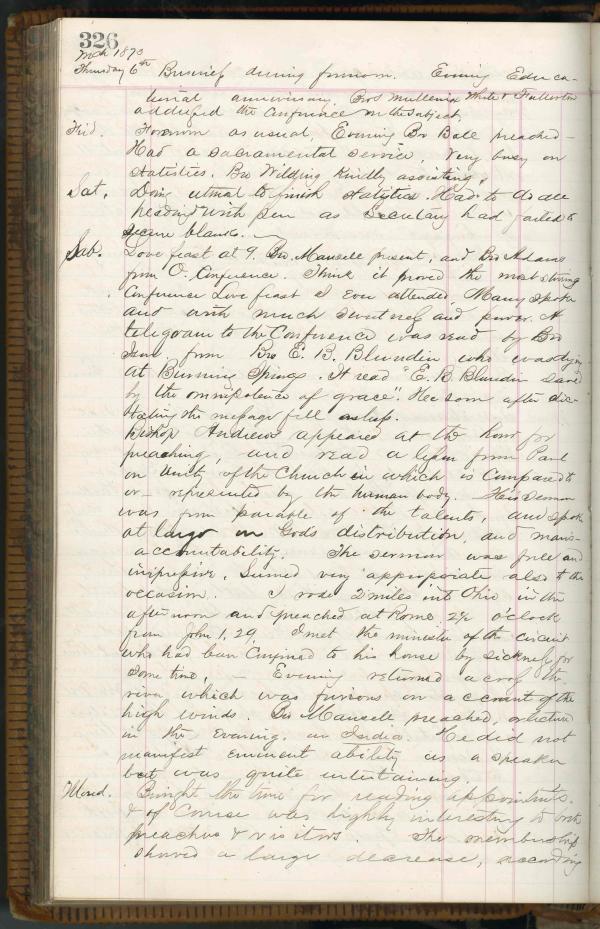 326
Mch 1873
Thursday 6th Business during forenoon. Evening Educa-
tional anniversary. Bros Mullenix White & Fullerton
addressed the Conference on the subject.
Frid. Forenoon as usual, Evening Bro Ball preached –
Had a sacramental service, Very busy on
statistics. Bro Wilding kindly assisting.
Sat. Doing utmost to finish statistics. Had to do all
heading with pen as Secretary had failed to
secure blanks.
Sab. Love feast at 9. Bro. Mansell present, and Bro Adams
from O. Conference. Think it proved the most strong
Conference Love feast I ever attended, Many spoke
and with much sweetness and power. A
telegram to the Conference was read by Bro
from Bro E. B. Blundin who was dying
at Burning Springs. It read "E. B. Blundin saved
by the omnipotence of grace". He soon after dic-
tating the message fell asleep.
Bishop Andrews appeared at the hour for
preaching, and read a lesson from Paul
on Unity of the Church in which is Compared to
or – represented by the human body. His sermon
was from parable of the talents, and spoke
at large on Gods distribution, and mans-
accountability. The sermon was free and
impressive. Seemed very appropriate also to the
occasion. I rode 2 miles into Ohio in the
afternoon and preached at Rome 2½ o'clock
from John 1, 29 I met the minister of the circuit
who had been Confined to his house by sickness for
some time, – Evening returned across the
river which was furious on account of the
high winds. Bro Mansell preached, or lectured
in the Evening, on India. He did not
manifest eminent ability as a speaker
but was quite entertaining.
Mond. Brought the time for reading appointments.
& of Course was highly interesting to both
preachers & visitors. The membership
showed a large decrease, according